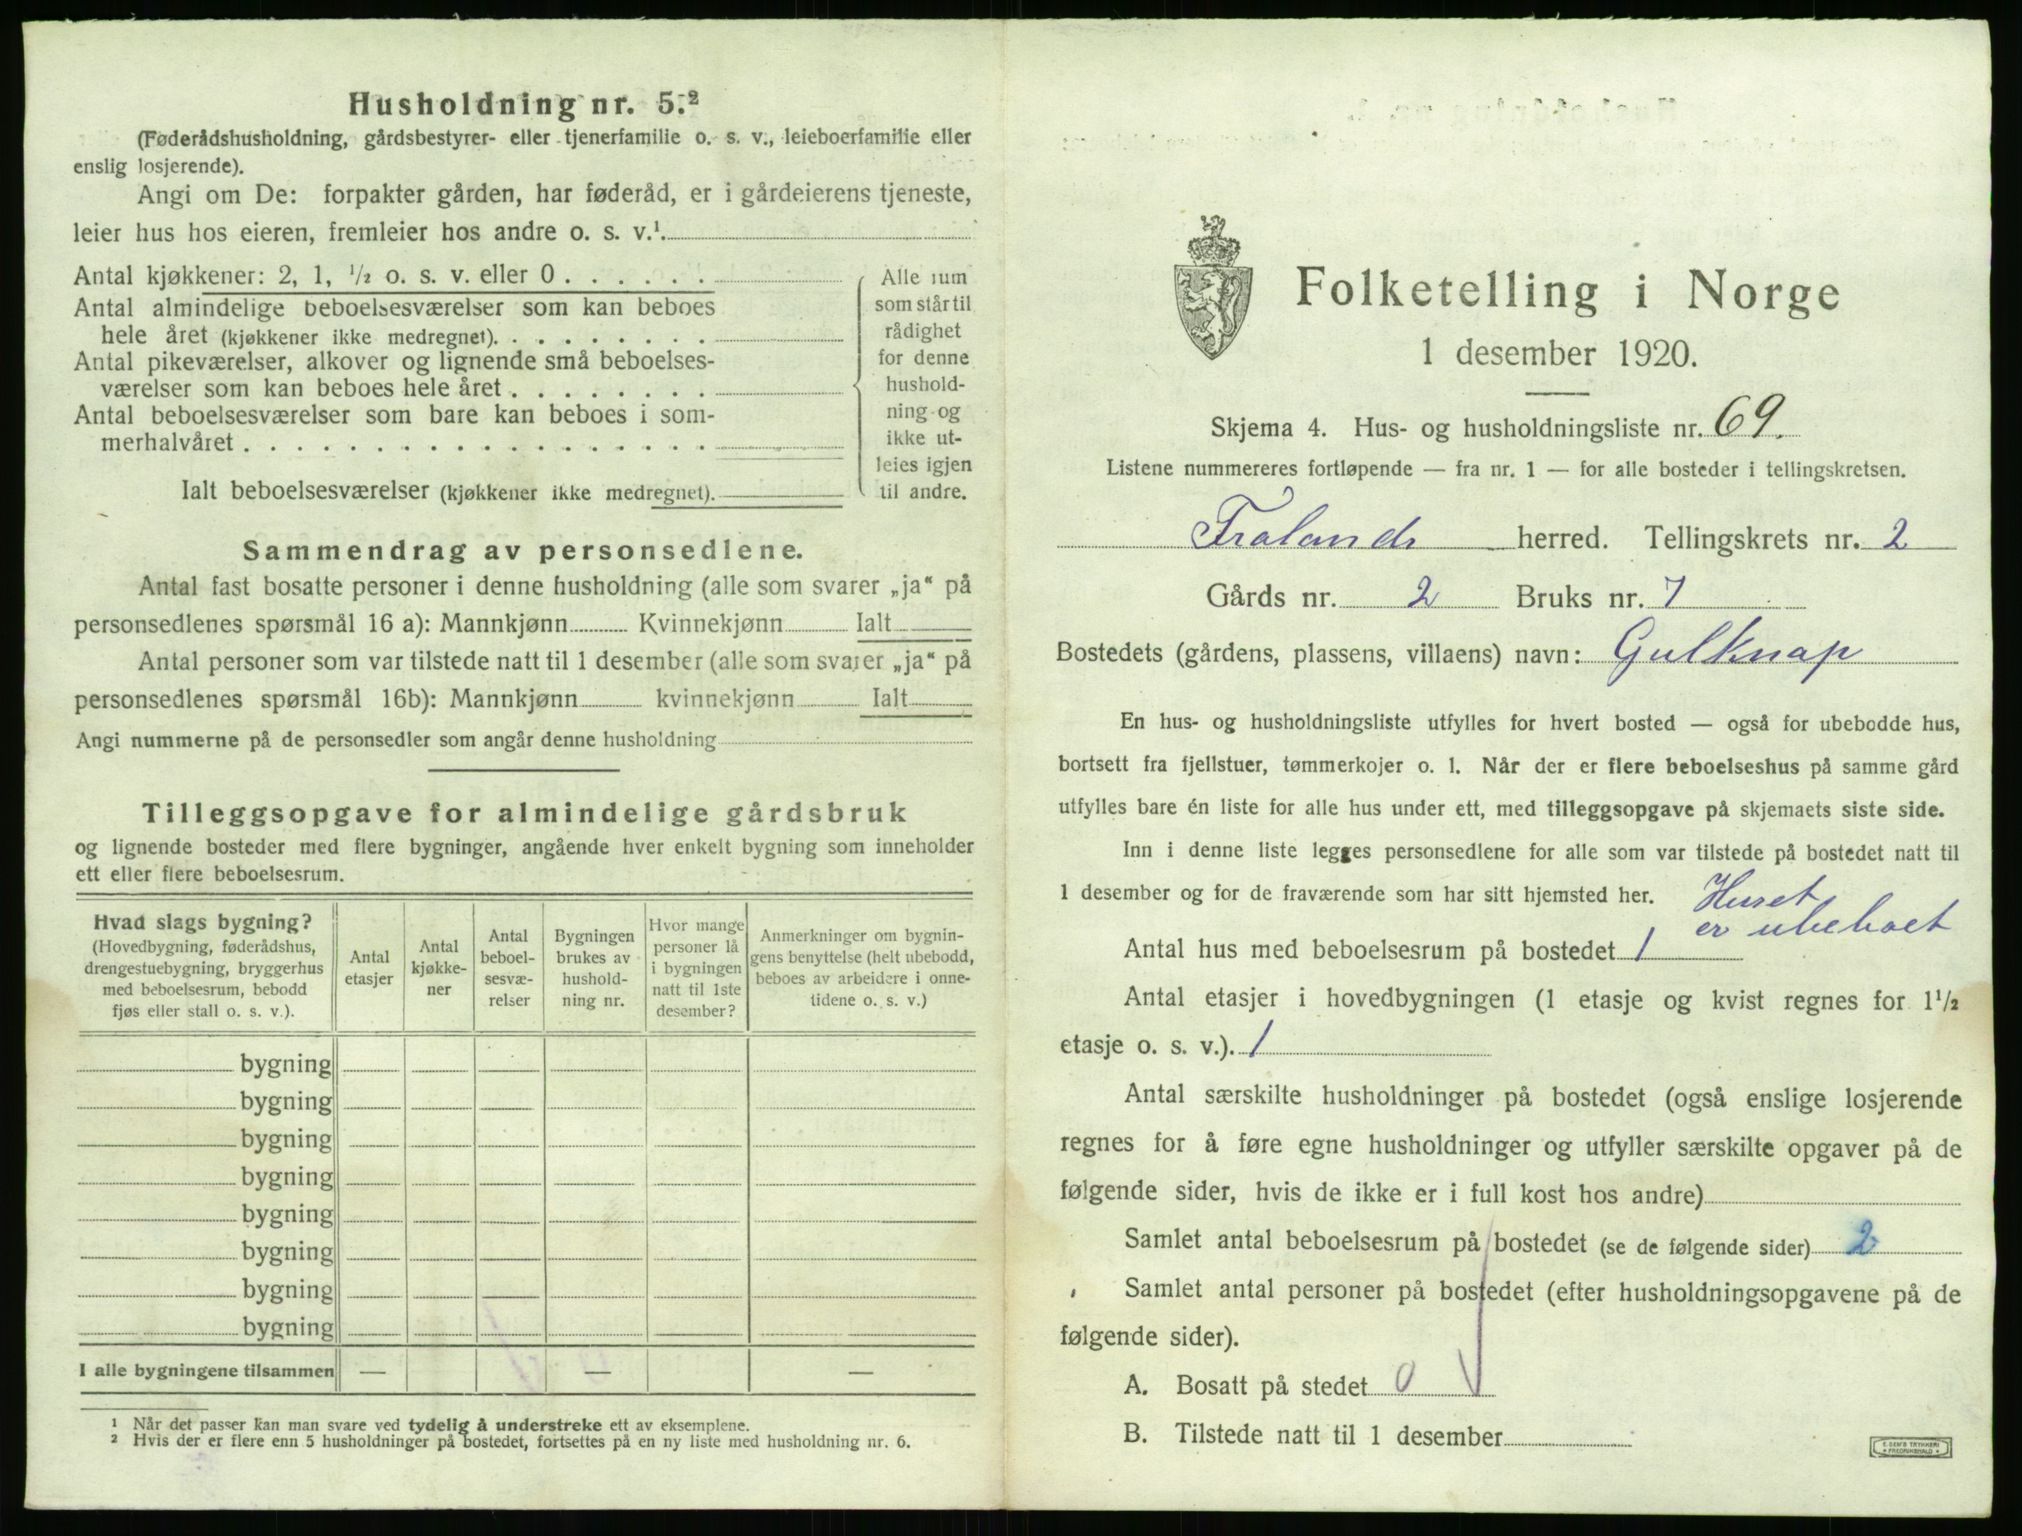 Husholdning nr. 5.²
(Føderådshusholdning, gårdsbestyrer- eller tjenerfamilie o. s. v., leieboerfamilie eller
enslig losjerende).
Angi om De: forpakter gården, har føderåd, er i gårdeierens tjeneste,
leier hus hos eieren, fremleier hos andre o. s. v.¹.
Antal kjøkkener: 2, 1, ½ o. s. v. eller 0 . . . . . .
Antal almindelige beboelsesværelser som kan beboes
hele året (kjøkkener ikke medregnet). . . . . . . . .
Antal pikeværelser, alkover og lignende små beboelses-
værelser som kan beboes hele året . . . . . . . .
Antal beboelsesværelser som bare kan beboes i som-
merhalvåret . . . . . . . . . . . . . . . . . .
Ialt beboelsesværelser (kjøkkener ikke medregnet).
Alle rum
som står til
rådighet
for denne
hushold-
ning og
ikke ut-
leies igjen
til andre.
Sammendrag av personsedlene.
Antal fast bosatte personer i denne husholdning (alle som svarer „ja“ på
personsedlenes spørsmål 16 a): Mannkjønn Kvinnekjønn Ialt
Antal personer som var tilstede natt til 1 desember (alle som svarer „ja“ på
personsedlenes spørsmål 16b): Mannkjønn kvinnekjønn Ialt
Angi nummerne på de personsedler som angår denne husholdning
Tilleggsopgave for almindelige gårdsbruk
og lignende bosteder med flere bygninger, angående hver enkelt bygning som inneholder
ett eller flere beboelsesrum.
Hvad slags bygning?
(Hovedbygning, føderådshus,
drengestuebygning, bryggerhus
med beboelsesrum, bebodd
fjøs eller stall o. s. v.).
Antal
etasjer
Antal
kjøkke-
ner
Antal
beboel-
sesvæ-
relser
Bygningen
brukes av
hushold-
ning nr.
Hvor mange
personer lå
i bygningen
natt til 1ste
desember?
Anmerkninger om bygnin-
gens benyttelse (helt ubebodd,
beboes av arbeidere i onne-
tidene o. s. v.)
bygning
bygning
bygning
bygning
bygning
bygning
bygning
bygning
I alle bygningene tilsammen — — —
¹ Når det passer kan man svare ved tydelig å understreke ett av eksemplene.
² Hvis der er flere enn 5 husholdninger på bostedet, fortsettes på en ny liste med husholdning nr. 6.
Folketelling i Norge
1 desember 1920.
Skjema 4. Hus- og husholdningsliste nr. 69.
Listene nummereres fortløpende — fra nr. 1 — for alle bosteder i tellingskretsen.
Frolands herred. Tellingskrets nr. 2
Gårds nr. 2 Bruks nr. 7
Bostedets (gårdens, plassens, villaens) navn: Gulknap
En hus- og husholdningsliste utfylles for hvert bosted — også for ubebodde hus,
bortsett fra fjellstuer, tømmerkojer o. l. Når der er flere beboelseshus på samme gård
utfylles bare én liste for alle hus under ett, med tilleggsopgave på skjemaets siste side.
Inn i denne liste legges personsedlene for alle som var tilstede på bostedet natt til
1 desember og for de fraværende som har sitt hjemsted her.
Huset
er ubeboet
Antal hus med beboelsesrum på bostedet 1
Antal etasjer i hovedbygningen (1 etasje og kvist regnes for 1½
etasje o. s. v.). 1
Antal særskilte husholdninger på bostedet (også enslige losjerende
regnes for å føre egne husholdninger og utfyller særskilte opgaver på de
følgende sider, hvis de ikke er i full kost hos andre)
Samlet antal beboelsesrum på bostedet (se de følgende sider) 2
Samlet antal personer på bostedet (efter husholdningsopgavene på de
følgende sider).
A. Bosatt på stedet 0
B. Tilstede natt til 1 desember
E. SEM'S TRYKKERI
FREDRIKSHALD